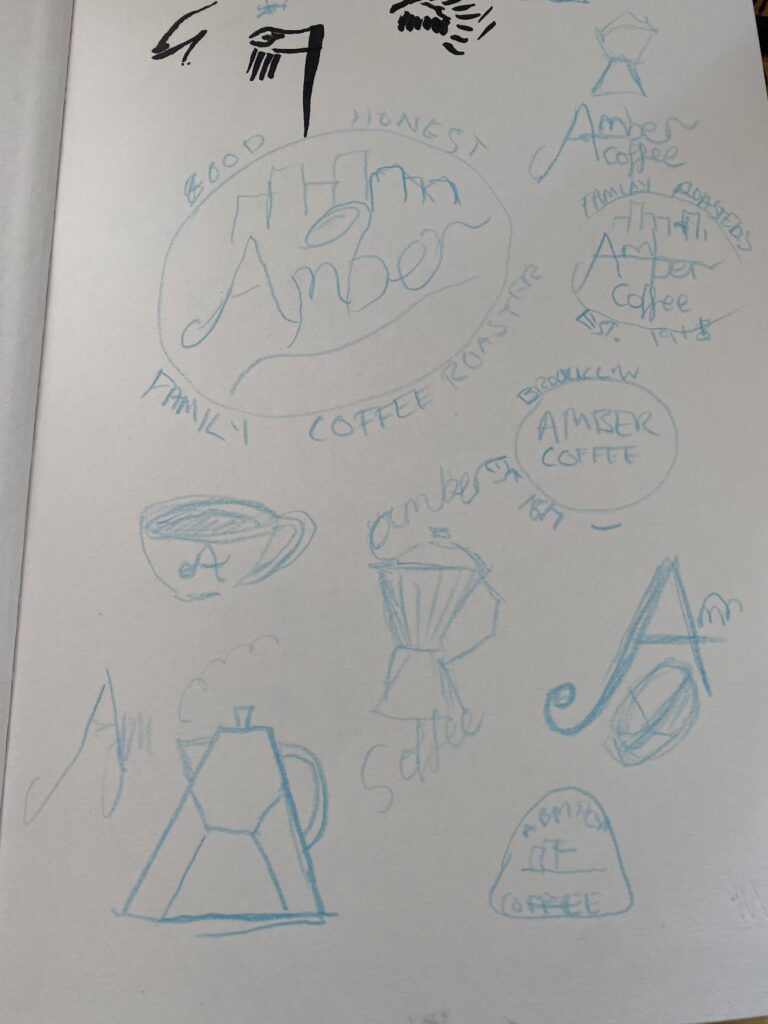 GOOD HONEST
Amber
FAMILY COFFEE ROASTER
Amber
coffee
FAMILY ROASTERS
Amber
Coffee
EST.
BROOKLYN
AMBER
COFFEE
A
amber
Coffee
Am
COFFEE